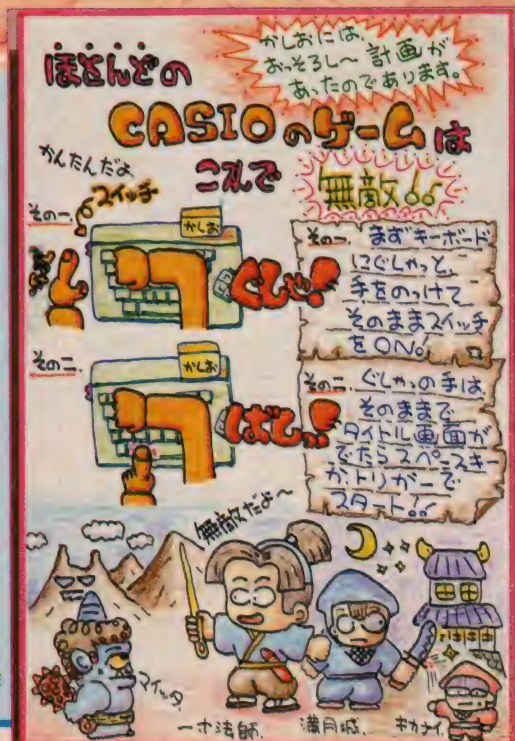 かしおには、
おっそろし〜計画が
あったのであります。
ほとんどの
CASIOのゲームは
これで
無敵
かんたんだよ
スイッチ
その一
かしお
ぐしゃ!
その一、まずキーボード
にぐしゃっと、
手をのっけて
そのままスイッチ
をON!
その二、
かしお
ばしっ!
その二、ぐしゃっの手は
そのままで
タイトル画面が
でたらスペースキー
か、トリガーで
スタート!!
無敵だよ〜
マイッタ、
一寸法師、
満月城、
キカナイ、